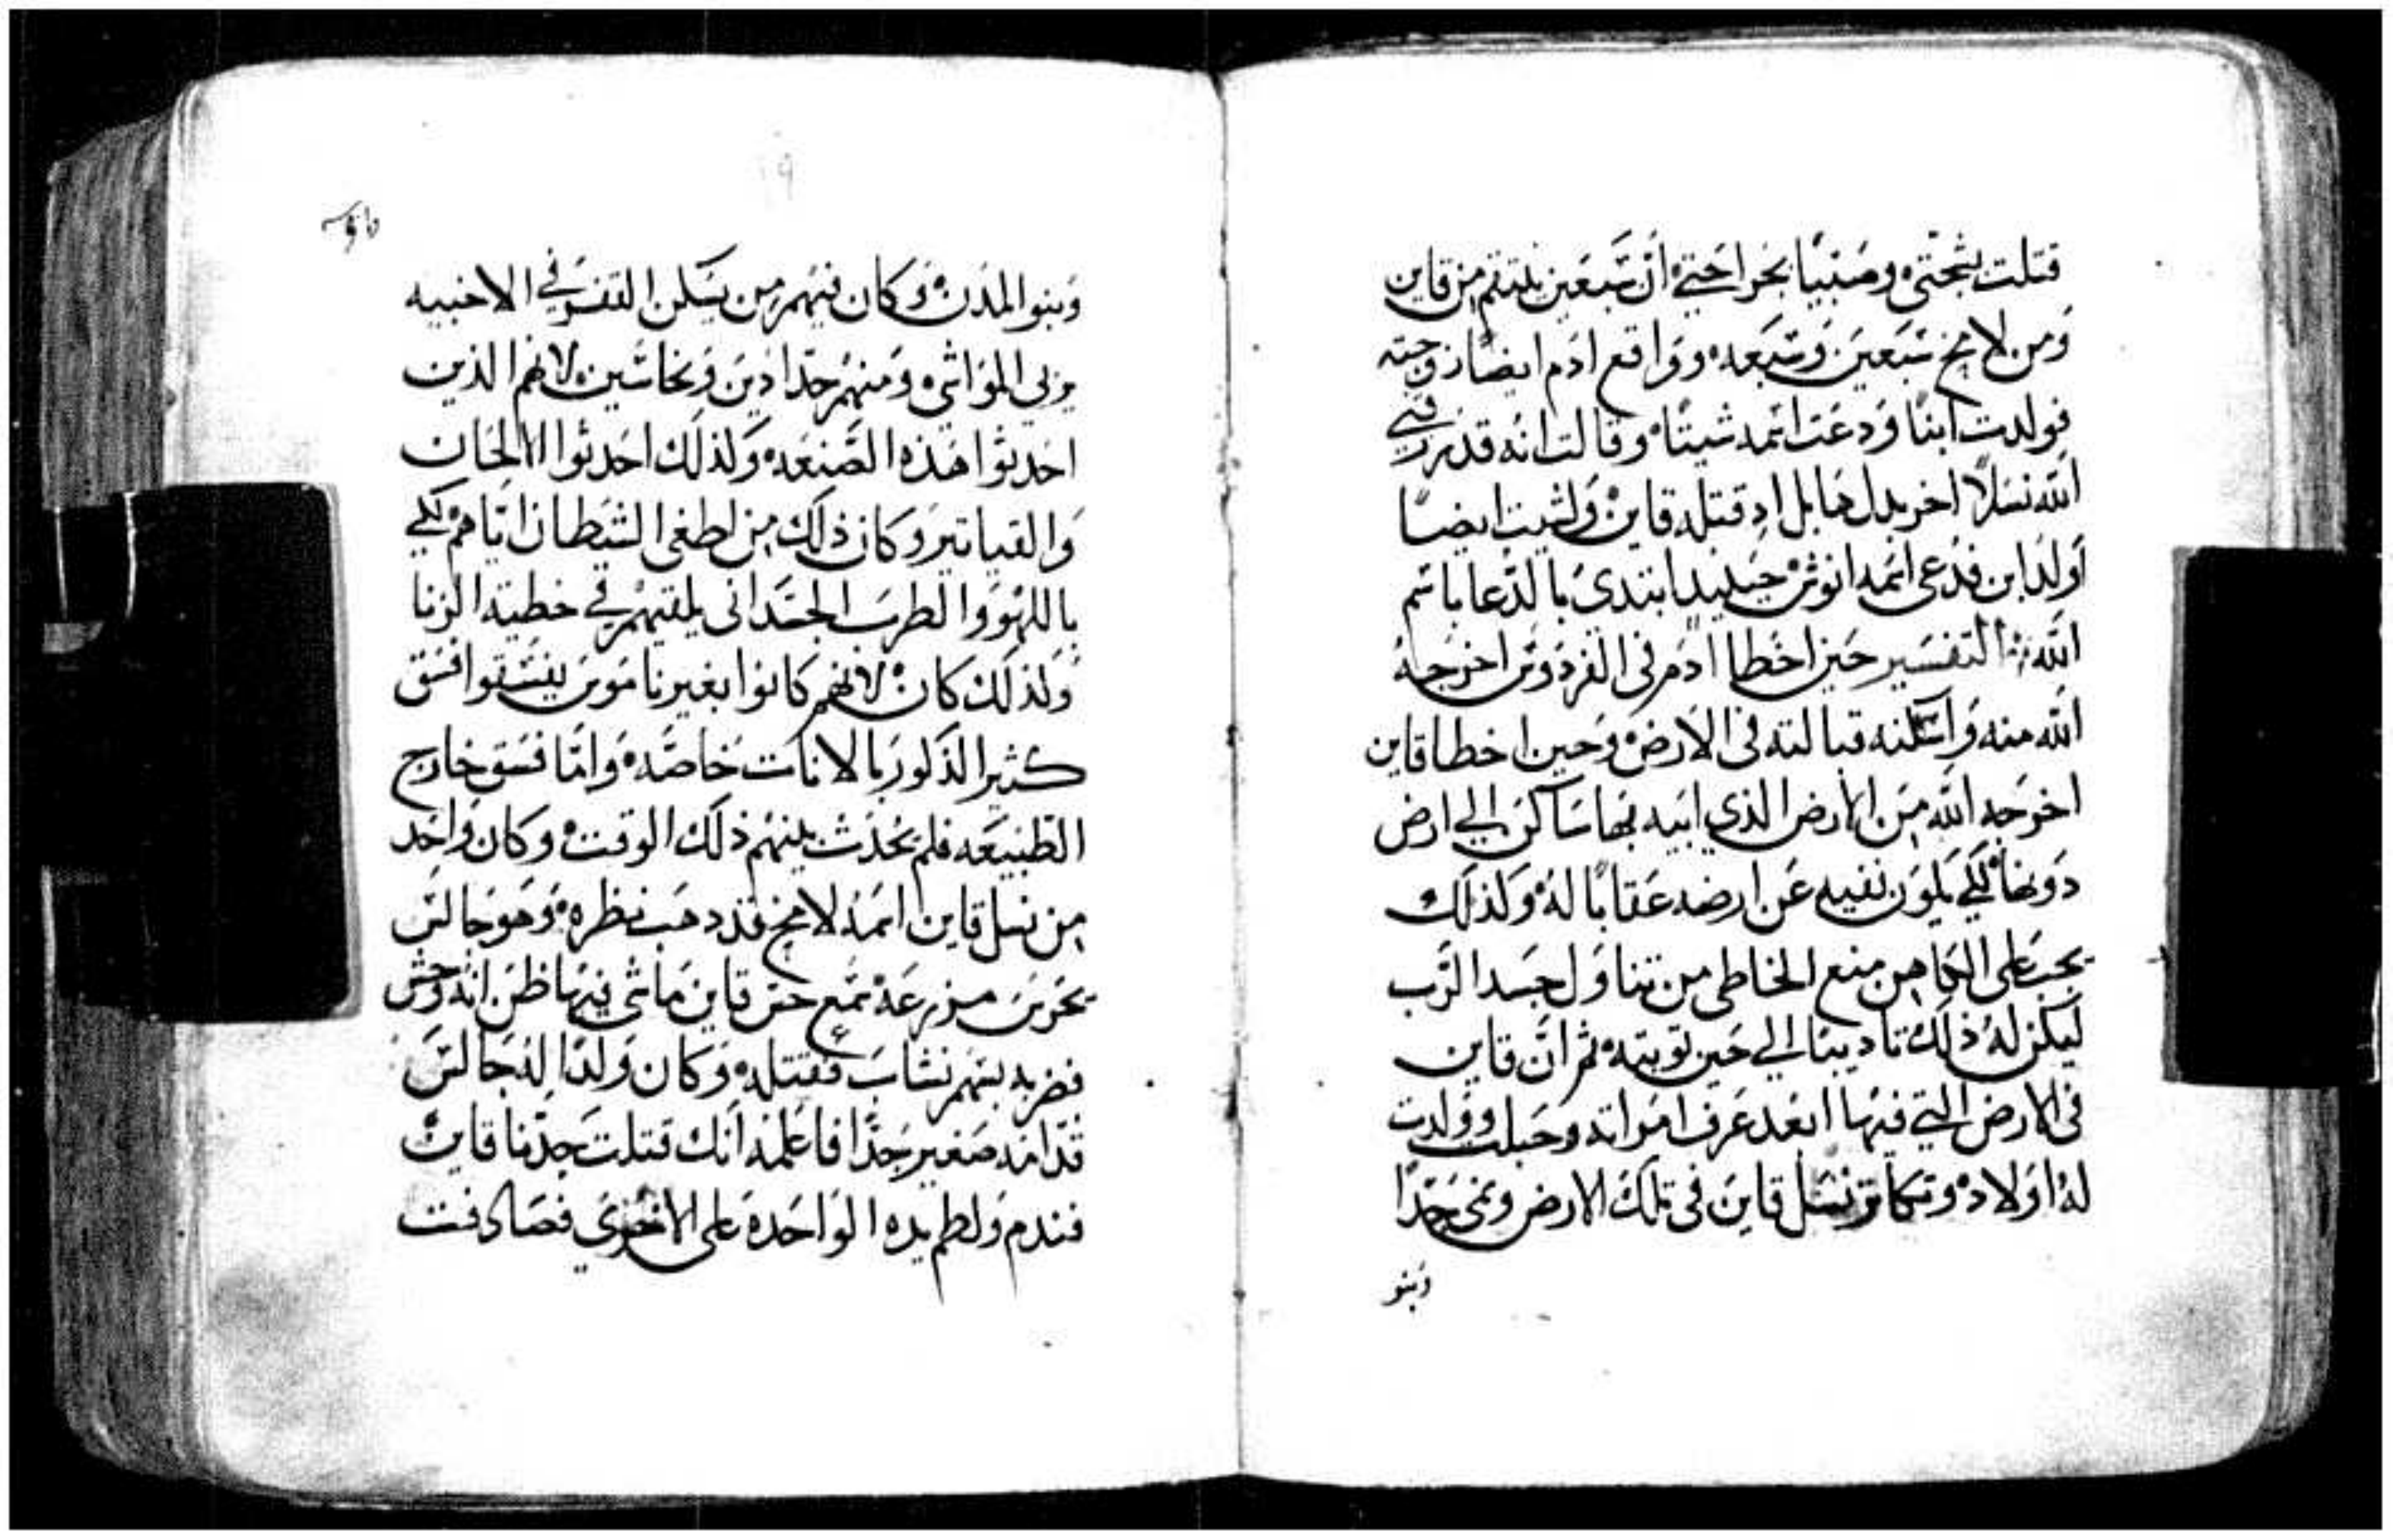 قتلت بشجتي وصبيًا بجراحتي ان سبعين ينتقم من قاين
ومن لامخ سبعين وسبعه وواقع ادم ايضًا زوجته
فولدت ابنًا ودعت اسمه شيتًا وقالت انه قد رزقني
الله نسلًا اخر بدل هابل اد قتله قاين ولشيت ايضًا
اولد ابن فدعى اسمه انوش حينيدٍ ابتدي بالدعا باسم
الله التفسير حين اخطا ادم في الفردوس اخرجه
الله منه واسكنه قبالته في الارض وحين اخطا قاين
اخرجه الله من الارض الذي ابيه بها ساكن الي ارض
دونها لكي يكون نفيه عن ارضه عقابًا له ولذلك
يجب على الكاهن منع الخاطي من تناول جسد الرب
ليكن له ذلك تاديبًا الي حين توبته ثم ان قاين
في الارض التي فيها ابعد عرف امراته وحبلت وولدت
له اولاد وتكاتر نسل قاين في تلك الارض ونمى جدًا
وبنو
وبنو المدن وكان فيهم من يسكن القفر في الاخبيه
يربي المواشي ومنهم حدادين ونحاسين لانهم الذين
احدثوا هذه الصنعه ولذلك احدثوا الالحان
والقياتير وكان ذلك من اطغى الشيطان اياهم لكي
باللهو والطرب الجسداني يلقيهم في خطية الزنا
ولذلك كان لانهم كانوا بغير ناموس يفسقوا فسق
كثير الذكور بالانات خاصه واما فسق خارج
الطبيعه فلم يحدث بينهم ذلك الوقت وكان واحد
من نسل قاين اسمه لامخ قد دهب نظره وهو جالس
يحرس مزرعة سمع حس قاين ماشي فيها ظن انه وحش
فضربه بسهم نشاب فقتله وكان ولدًا له جالس
قدامه صغير جدًا فاعلمه انك قتلت جدنا قاين
فندم ولطم يده الواحده على الاخرى فصادفت